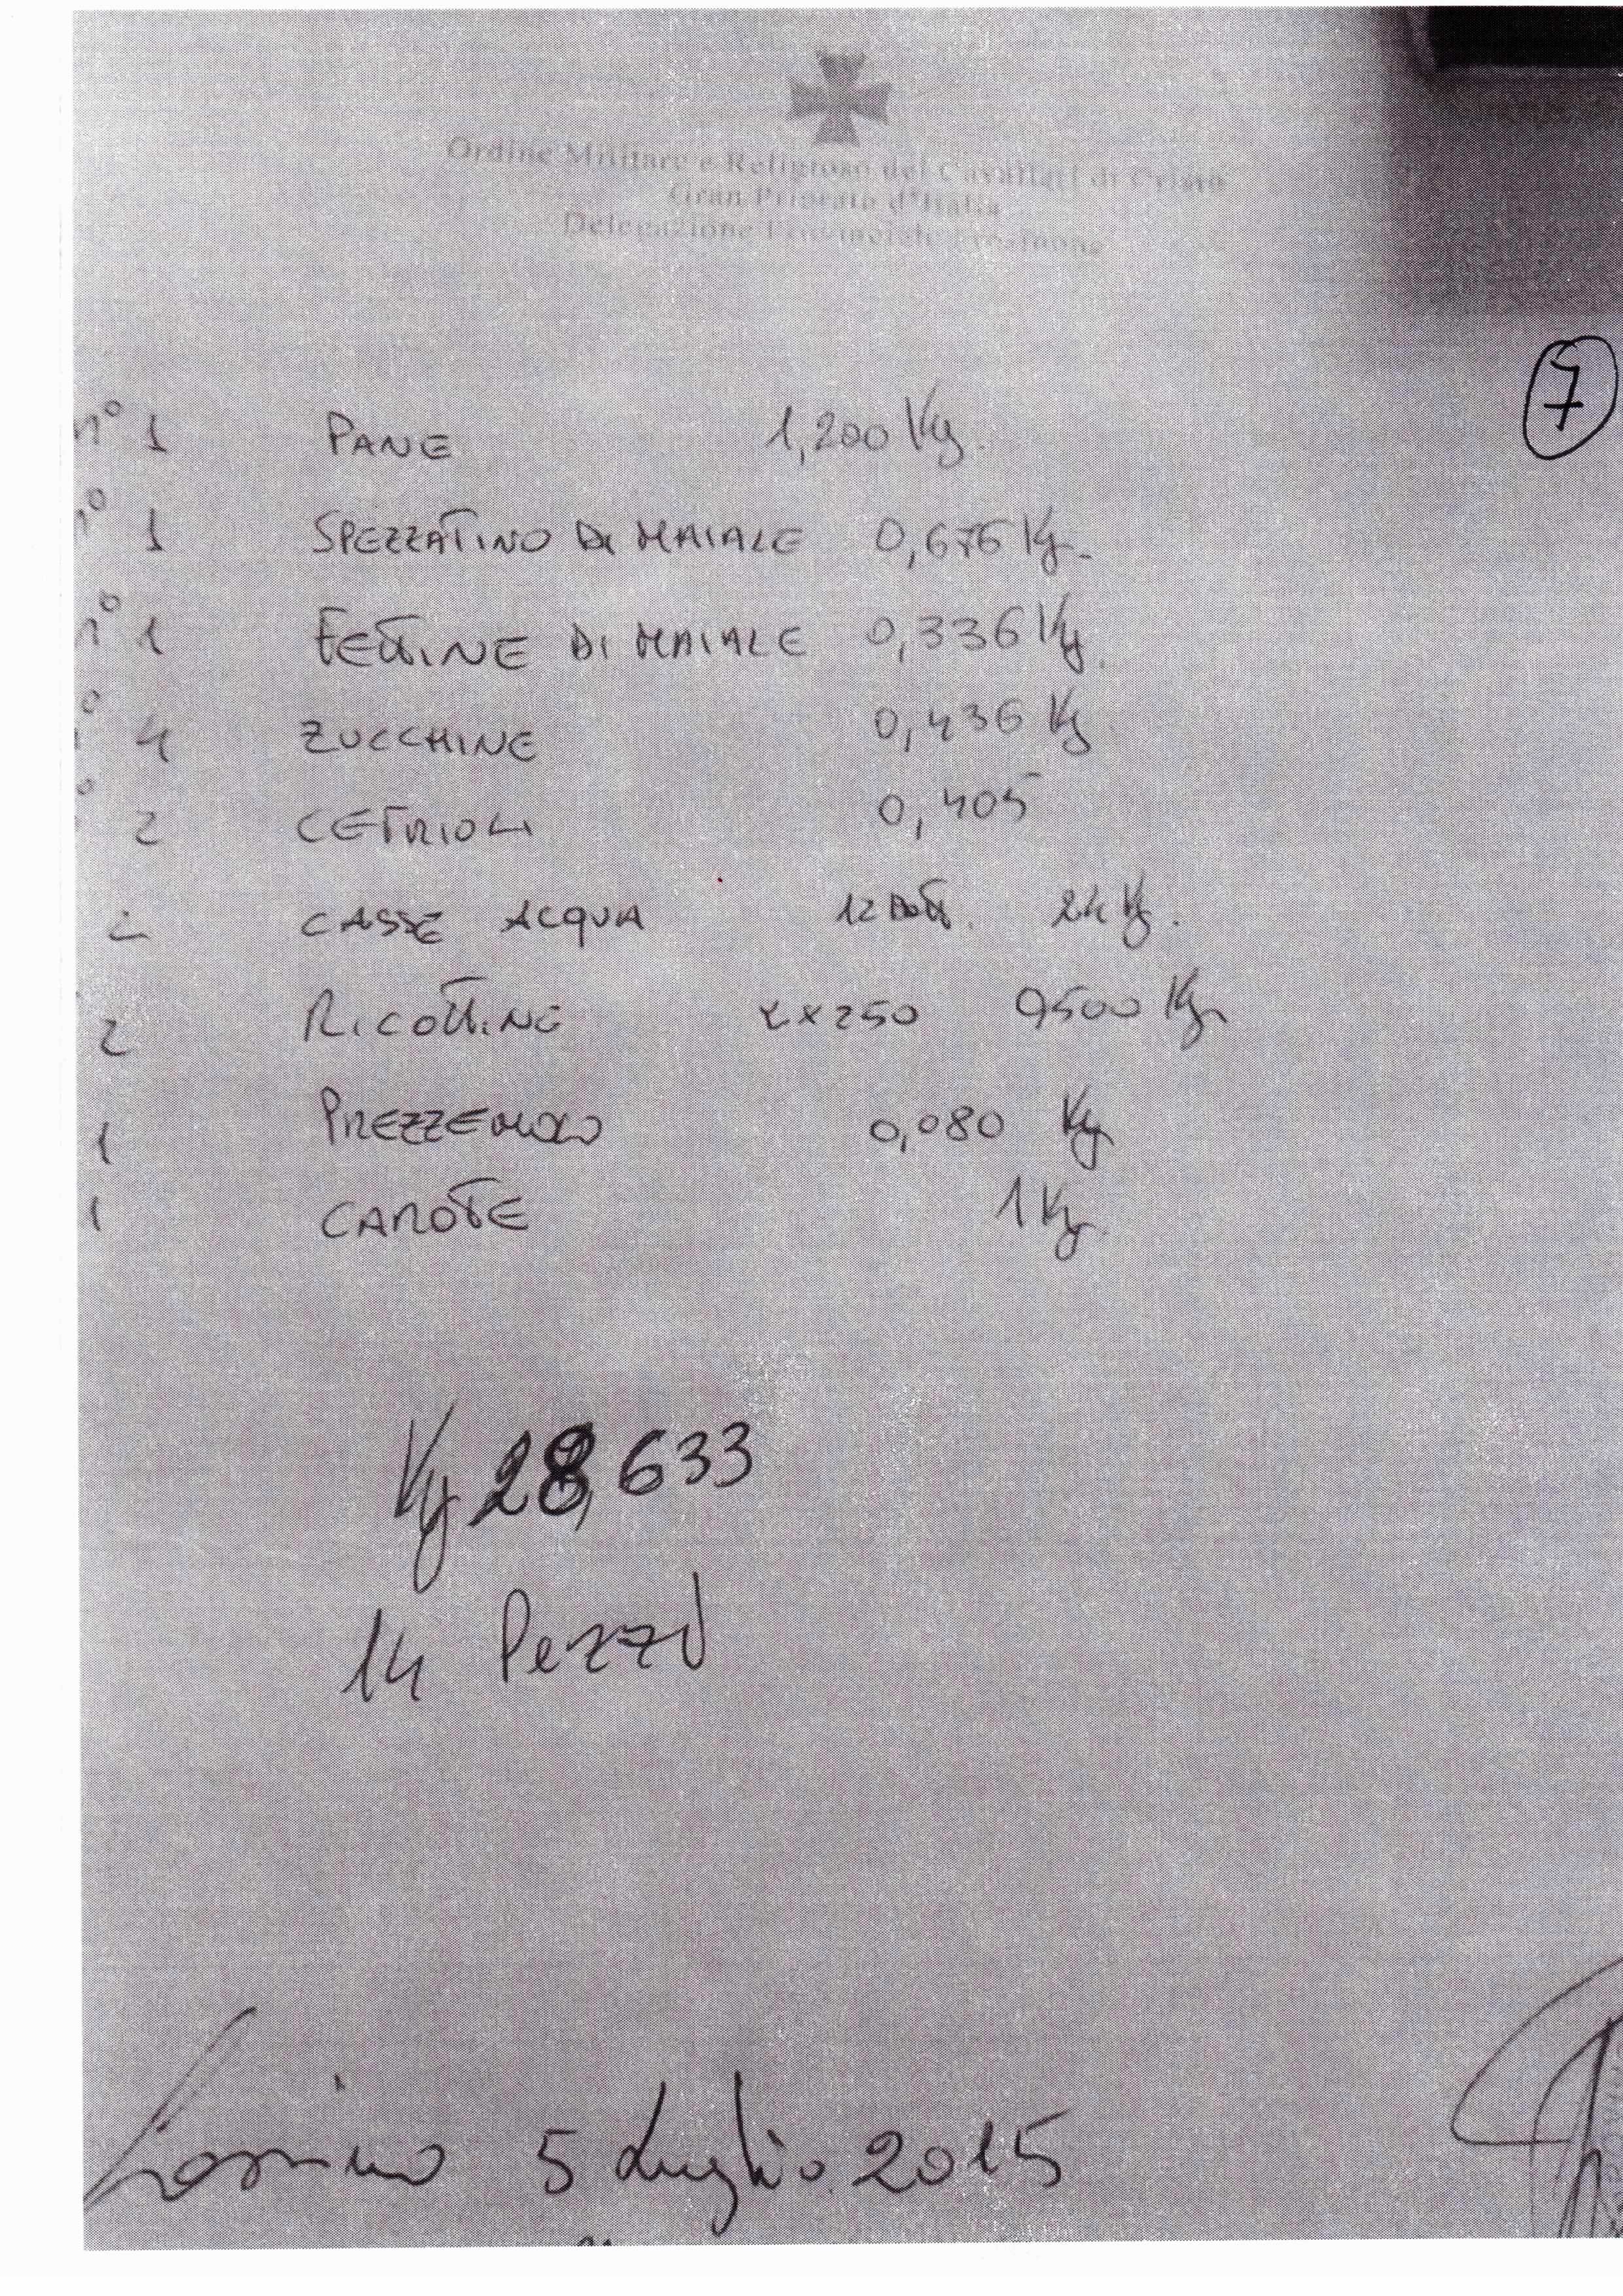 Ordine Militare e Religioso dei Cavalieri di Cristo
Gran Priorato d'Italia
Delegazione Provinciale Frosinone
7
n° 1 PANE 1,200 Kg.
n° 1 SPEZZATINO DI MAIALE 0,676 Kg.
n° 1 FETTINE DI MAIALE 0,336 Kg.
n° 4 ZUCCHINE 0,436 Kg
° 2 CETRIOLI 0,405
2 CASSE ACQUA 12 Bott. 24 Kg.
2 RICOTTINE 2x250 0,500 Kg
1 PREZZEMOLO 0,080 Kg
1 CAROTE 1 Kg.
Kg 28,633
14 Pezzi
5 Luglio 2015